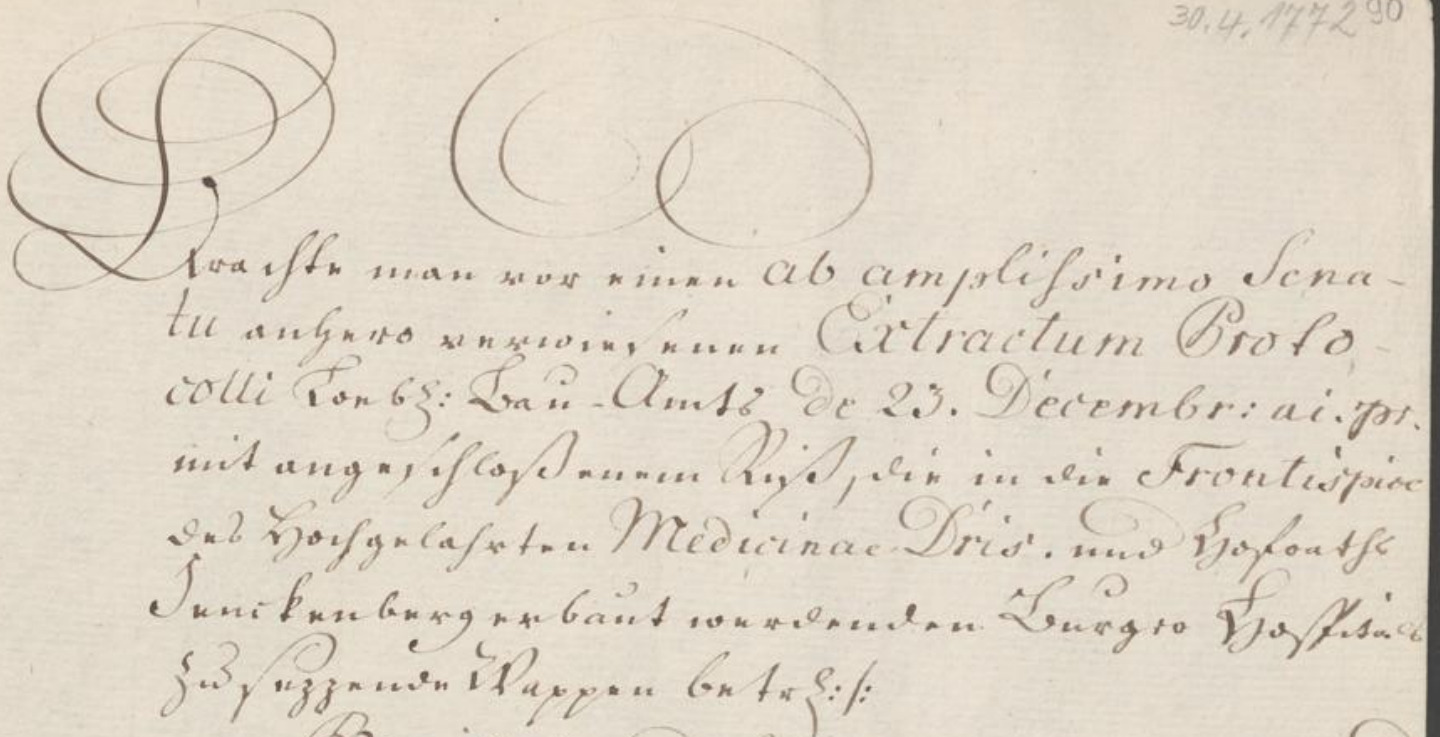 30.4.1772 90
Brachte man vor einen ab amplissimo Sena-
tu anhero verwiesenen Extractum Proto-
colli Loebl: Bau-Amts de 23. Decembr: ai. pr.
mit angeschloßenem Riß, die in die Frontispice
des Hochgelahrten Medicinae Dris. und Hofraths
Senckenberg erbaut werdenden Burger Hospitals
zu sezzende Wappen betr: